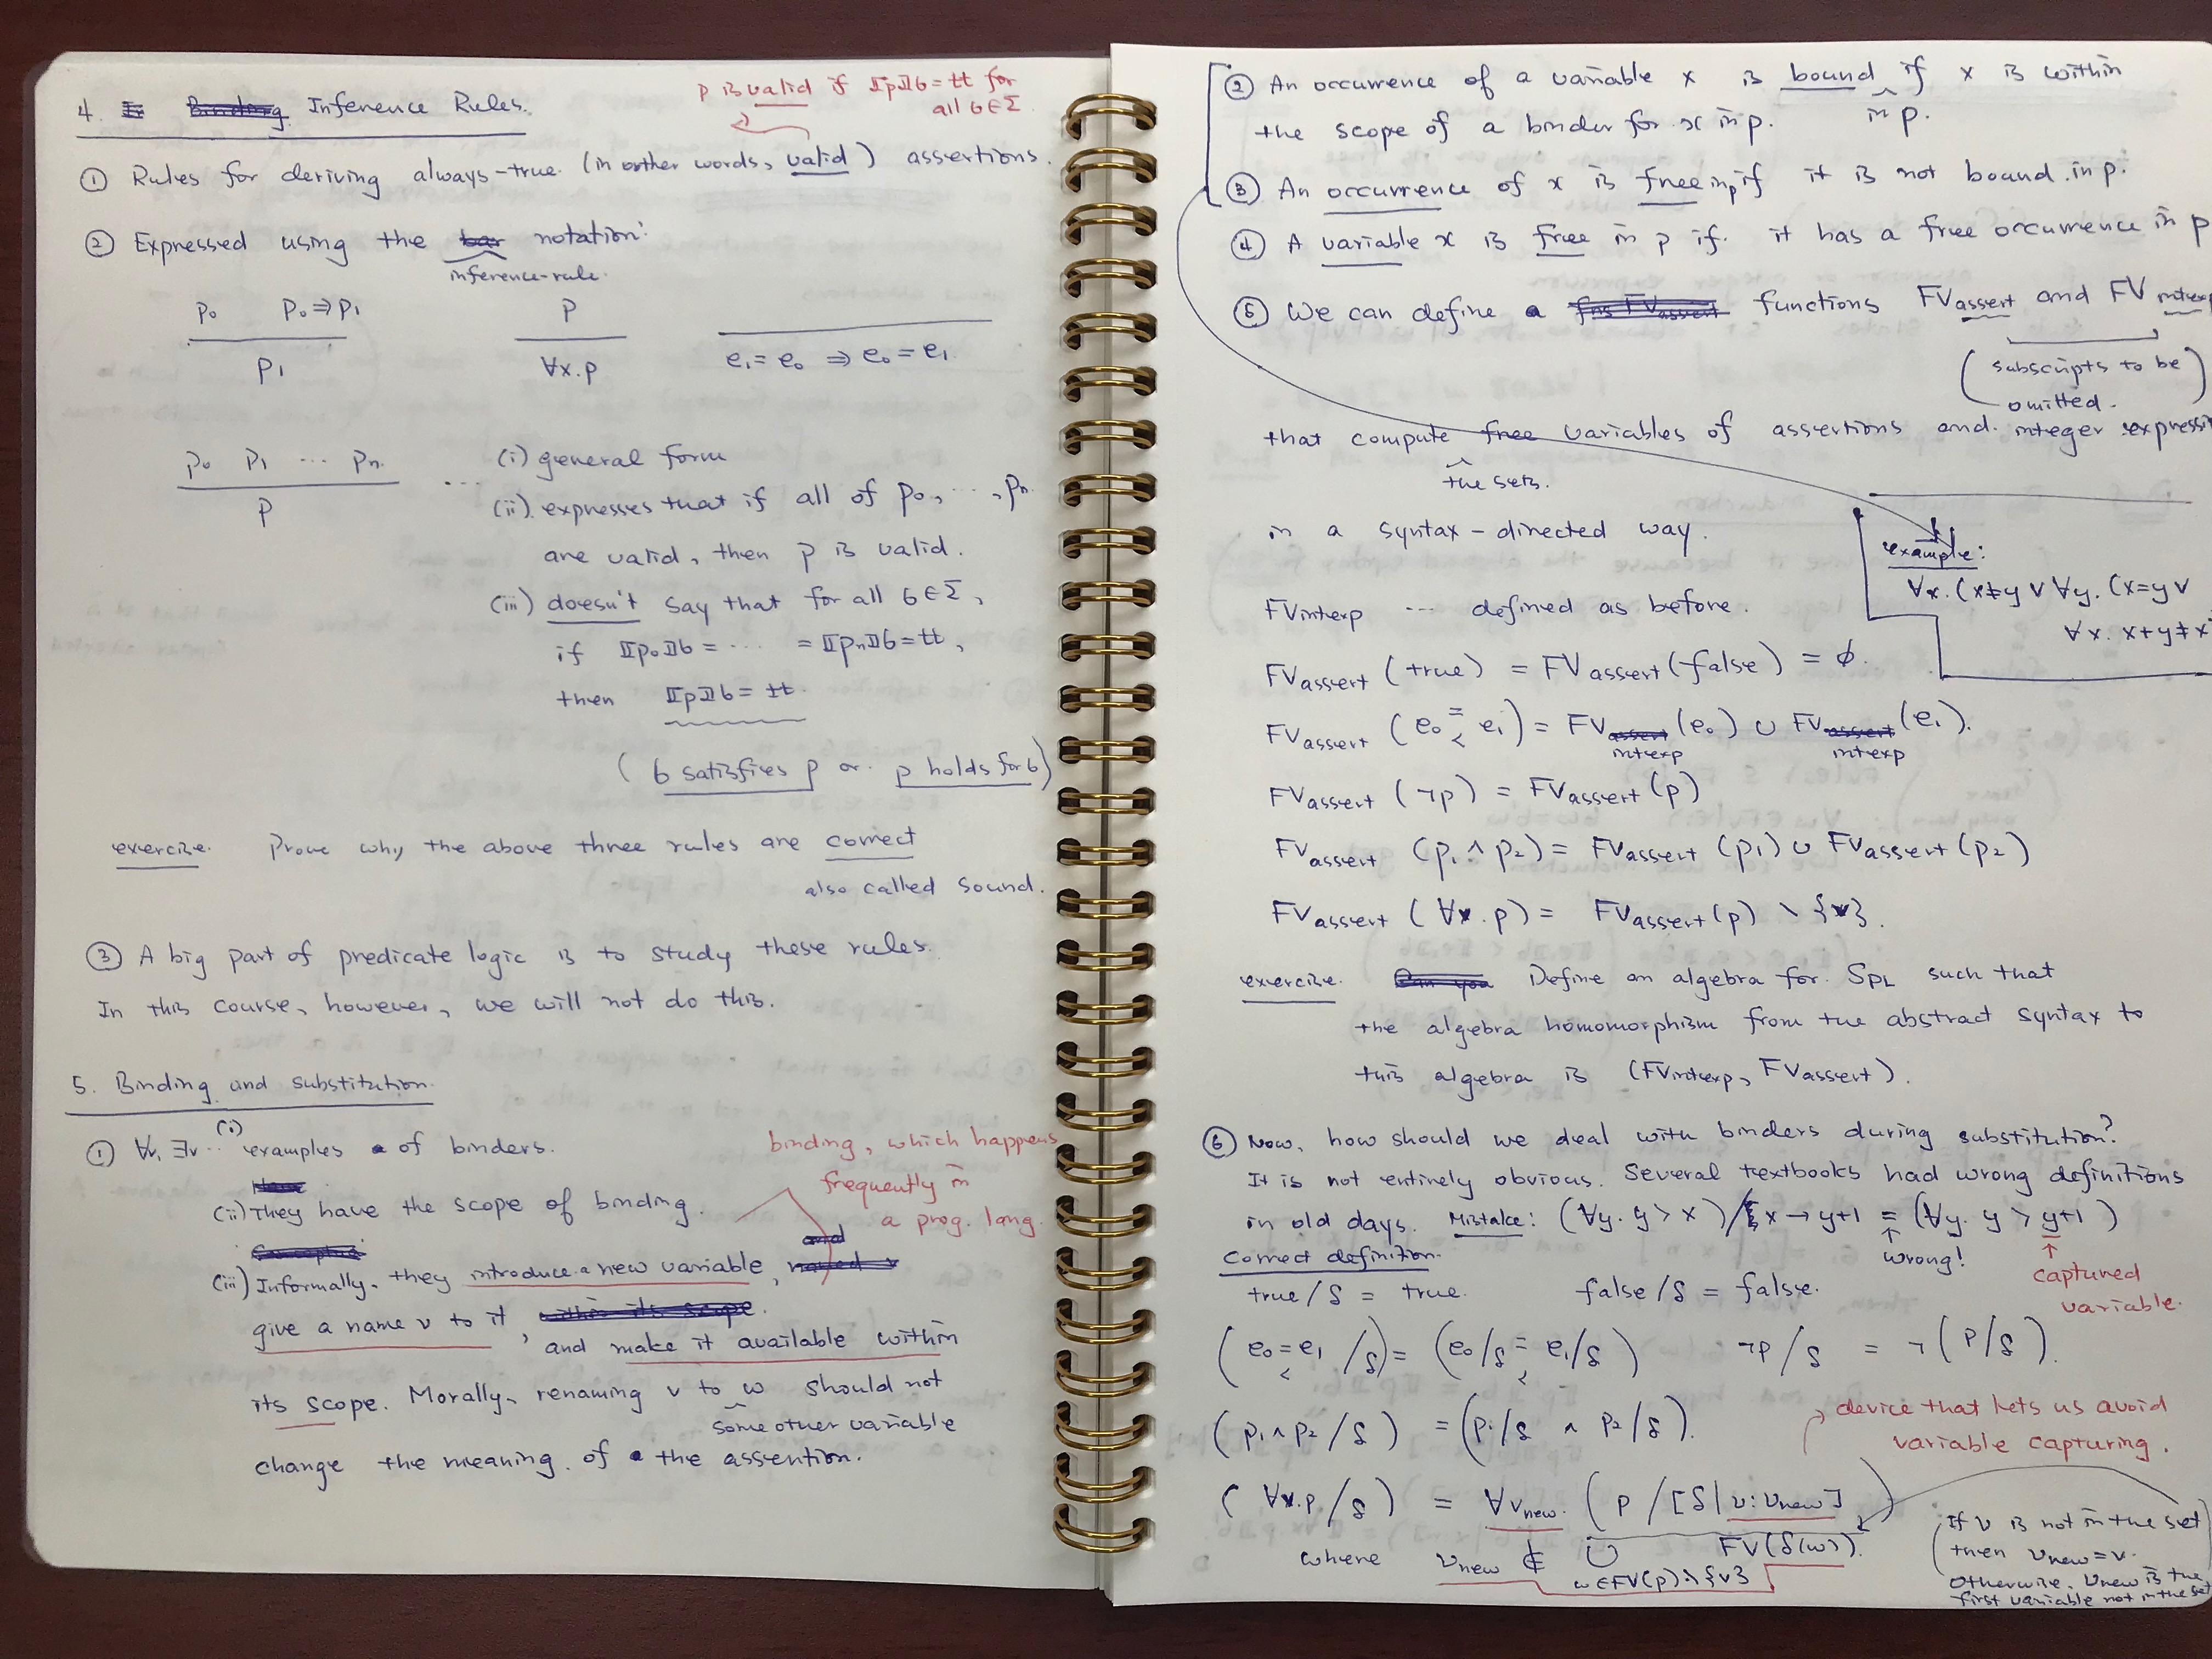 4. Inference Rules.
p is valid if ⟦p⟧σ = tt for
all σ∈Σ
① Rules for deriving always-true (in orther words, valid) assertions.
② Expressed using the notation:
inference-rule.
p₀ p₀⇒p₁
p₁
p
∀x.p
e₁=e₀ ⇒ e₀=e₁.
p₀ p₁ ⋯ pₙ
p
⋯ (i) general form
(ii) expresses that if all of p₀, ⋯, pₙ
are valid, then p is valid.
(iii) doesn't say that for all σ∈Σ,
if ⟦p₀⟧σ = ⋯ = ⟦pₙ⟧σ = tt,
then ⟦p⟧σ = tt.
(σ satisfies p or p holds for σ)
exercise. Prove why the above three rules are correct
also called sound.
③ A big part of predicate logic is to study these rules.
In this course, however, we will not do this.
5. Binding and substitution.
① ∀v, ∃v ⋯ (i) examples of binders.
(ii) They have the scope of binding.
binding, which happens
frequently in
a prog. lang.
(iii) Informally, they introduce a new variable,
give a name v to it, and make it available within
its scope. Morally, renaming v to w should not
some other variable
change the meaning of the assertion.
② An occurrence of a variable x is bound if x is within
in p.
the scope of a binder for x in p.
③ An occurrence of x is free in p if it is not bound in p.
④ A variable x is free in p if it has a free occurrence in p
⑤ We can define functions FVassert and FVintexp
(subscripts to be
omitted.)
that compute free variables of assertions and integer expressi
the sets.
in a syntax-directed way.
example:
∀x. (x≠y ∨ ∀y. (x=y ∨
∀x. x+y≠x
FVintexp ⋯ defined as before.
FVassert (true) = FVassert (false) = ∅.
FVassert (e₀ = e₁) = FV (e₀) ∪ FV (e₁).
< intexp intexp
FVassert (¬p) = FVassert (p)
FVassert (p₁ ∧ p₂) = FVassert (p₁) ∪ FVassert (p₂)
FVassert (∀v.p) = FVassert (p) \ {v}.
exercise. Define an algebra for SPL such that
the algebra homomorphism from the abstract syntax to
this algebra is (FVintexp, FVassert).
⑥ Now, how should we deal with binders during substitution?
It is not entirely obvious. Several textbooks had wrong definitions
in old days. Mistake: (∀y. y > x) / x → y+1 = (∀y. y > y+1)
↑ wrong!
↑ captured
variable.
Correct definition.
true/δ = true. false/δ = false.
(e₀ = e₁ /δ) = (e₀/δ = e₁/δ) ¬p/δ = ¬(p/δ).
< <
(p₁ ∧ p₂/δ) = (p₁/δ ∧ p₂/δ).
device that lets us avoid
variable capturing.
(∀v.p/δ) = ∀vnew. (p/[δ|v:vnew])
where vnew ∉ ∪ FV(δ(w)).
w∈FV(p)\{v}
(If v is not in the set
then vnew=v.
otherwise, vnew is the
first variable not in the set